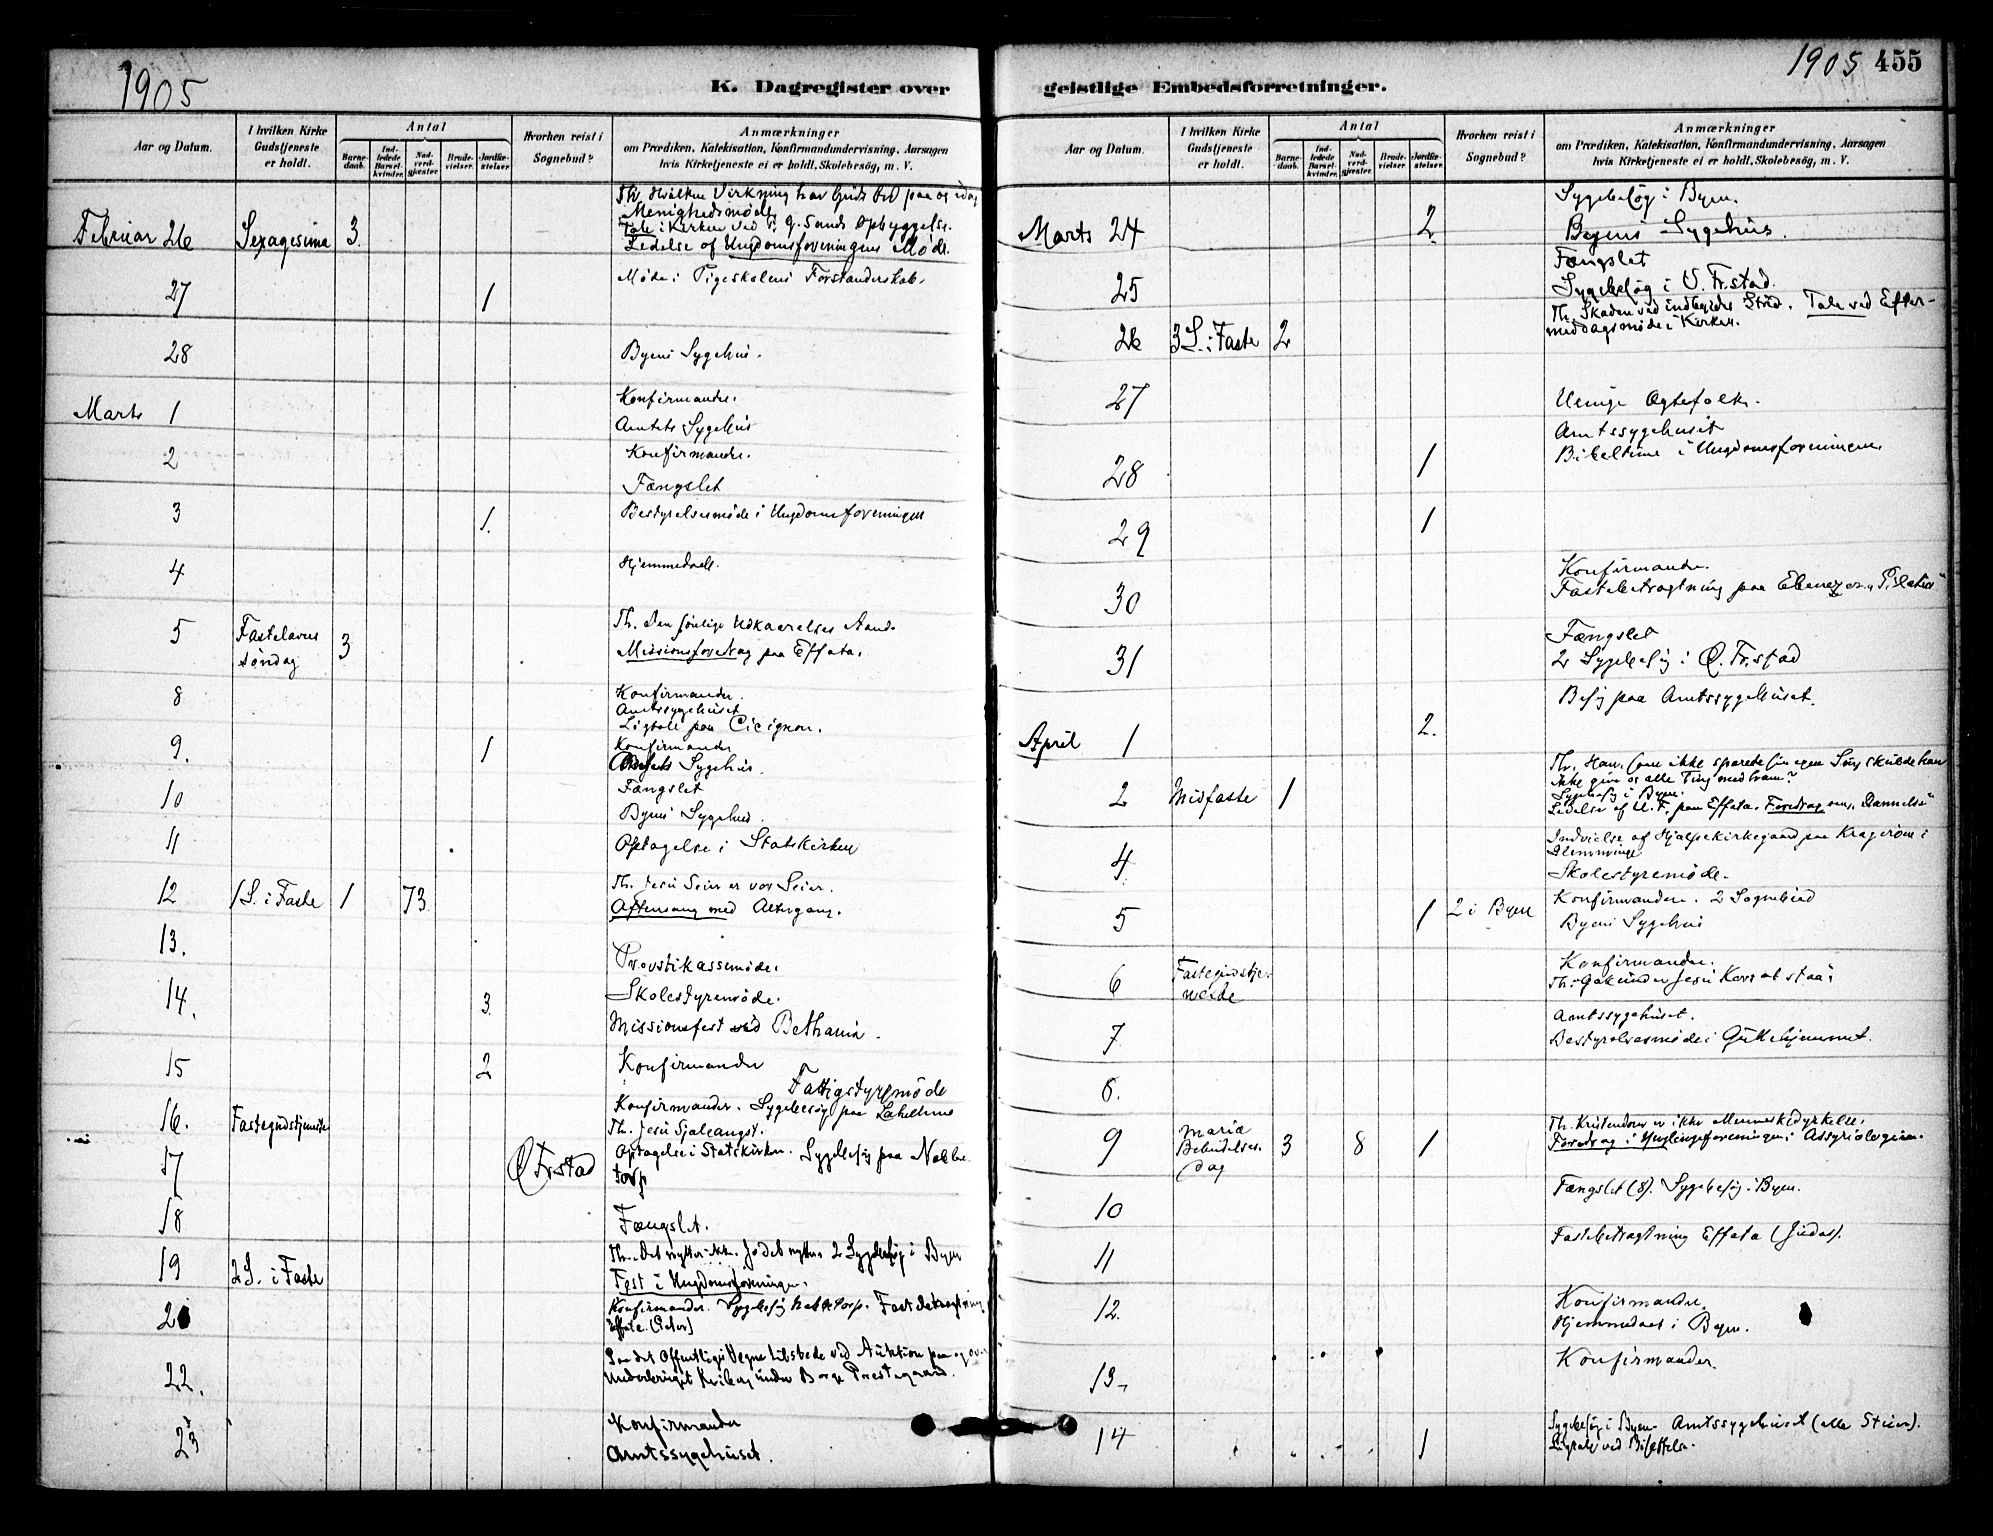 1905
K. Dagregister over
Aar og Datum.
I hvilken Kirke Gudstjeneste er holdt.
Antal
Barnedaab.
Indledede Barselkvinder.
Nadverdgjæster.
Brudevielser.
Jordfæstelser.
Hvorhen reist i Sognebud?
Anmærkninger
om Prædiken, Katekisation, Konfirmandundervisning, Aarsagen
hvis Kirketjeneste ei er holdt, Skolebesøg, m. V.
Th. Hvilken Virkning har Guds Ord paa os idag
Menighedsmøde
Februar 26 Sexagesima 3. Tale i Kirken ved
Ledelse af Ungdomsforeningens Møde.
27 1 Møde i Pigeskolens Forstanderskab.
28 Byens Sygehus.
Marts 1 Konfirmander.
Amtets Sygehus
2 Konfirmander.
Fængslet
3 1. Bestyrelsesmøde i Ungdomsforeningen
4 Hjemmedaab.
5 Fastelavns søndag 3 Th. Den Aand.
Missionsforedrag paa Effata.
8 Konfirmander.
Amtssygehuset
Ligtale paa Cicignon.
9. 1 Konfirmander
Sygehus.
10 Fængslet
Byens Sygehus.
11 Optagelse i Statskirken
12 1 S. i Faste 1 73 Th. Jesu Seier er vor Seier.
Aftensang med Altergang.
13. Provstikassemøde.
14. 3. Skolestyremøde.
Missionsfest ved Bethania.
15 2 Konfirmander
Fattigstyremøde
16. Fastegudstjeneste Konfirmander. Sygebesøg paa
Th. Jesu Sjæleangst.
17 Ø Fr.stad Optagelse i Statskirken. Sygebesøg paa Nabbetorp
18 Fængslet.
19 2 S. i Faste Th. Det nytter ikke. Jo det nytter 2 Sygebesøg i Byen
Fest i Ungdomsforeningen.
21 Konfirmander. Sygebesøg Nabbetorp. Fastebetragtning
Effata.
22. Paa det Offentliges Vegne tilstede ved Auktion paa
under Borge Prestegaard.
23 Konfirmander
Amtssygehuset.
1905 455
geistlige Embedsforretninger.
Aar og Datum.
I hvilken Kirke Gudstjeneste er holdt.
Antal
Barnedaab.
Indledede Barselkvinder.
Nadverdgjæster.
Brudevielser.
Jordfæstelser.
Hvorhen reist i Sognebud?
Anmærkninger
om Prædiken, Katekisation, Konfirmandundervisning, Aarsagen
hvis Kirketjeneste ei er holdt, Skolebesøg, m. V.
Sygebesøg i Byen.
Marts 24 2. Byens Sygehus.
Fængslet
25 Sygebesøg i Ø. Fr.stad.
Th. Skaden ved indbyrdes Strid. Tale ved Efter-
26 3 S. i Faste 2 middagsmøde i Kirken.
27 Uenige Ægtefolk.
Amtssygehuset
28 1 Bibeltime i Ungdomsforeningen
29 1
30 Konfirmander.
Fastebetragtning paa Ebenezer "Pilatus"
31 Fængslet
2 Sygebesøg i Ø. Fr.stad
Besøg paa Amtssygehuset.
April 1 2.
2 Midfaste 1 Th. Han, som ikke sparede sin egen Søn, skulde han
ikke give os alle Ting med ham?
Sygebesøg i Byen.
Ledelse af U. F. paa Effata. Foredrag om "Dannelse"
4 Indvielse af Hjælpekirkegaard paa Kragerøen i
Glemminge
Skolestyremøde.
5 1 2 i Byen Konfirmander. 2 Sognebud
Byens Sygehus
6 Fastegudstjeneste Konfirmander.
Th. Gak under Jesu Kors at staa
7 Amtssygehuset.
Bestyrelsesmøde i Guttehjemmet.
8.
9 Maria Bebudelses dag 3 8 1 Th. Kristendom er ikke Menneskedyrkelse.
Foredrag i Ynglingeforeningen: Assyriologien.
10 Fængslet (8). Sygebesøg i Byen.
11 Fastebetragtning Effata (Judas).
12. Konfirmander.
Hjemmedaab i Byen.
13. Konfirmander.
14 1 Sygebesøg i Byen. Amtssygehuset (alle Stuer).
Ligtale ved Bisættelse.